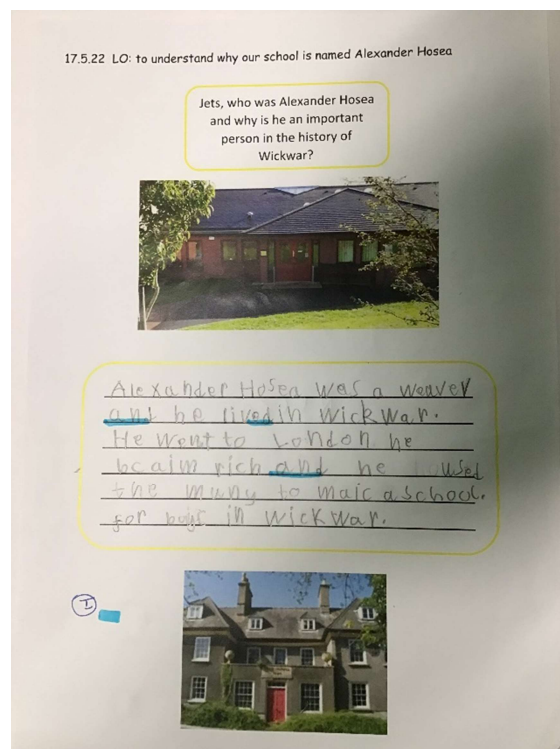 17.5.22 LO: to understand why our school is named Alexander Hosea
Jets, who was Alexander Hosea
and why is he an important
person in the history of
Wickwar?
Alexander Hosea was a weaver
and he livedin Wickwar.
He went to London he
bcaim rich and he used
the muny to maic a school.
for boys in Wickwar.
I